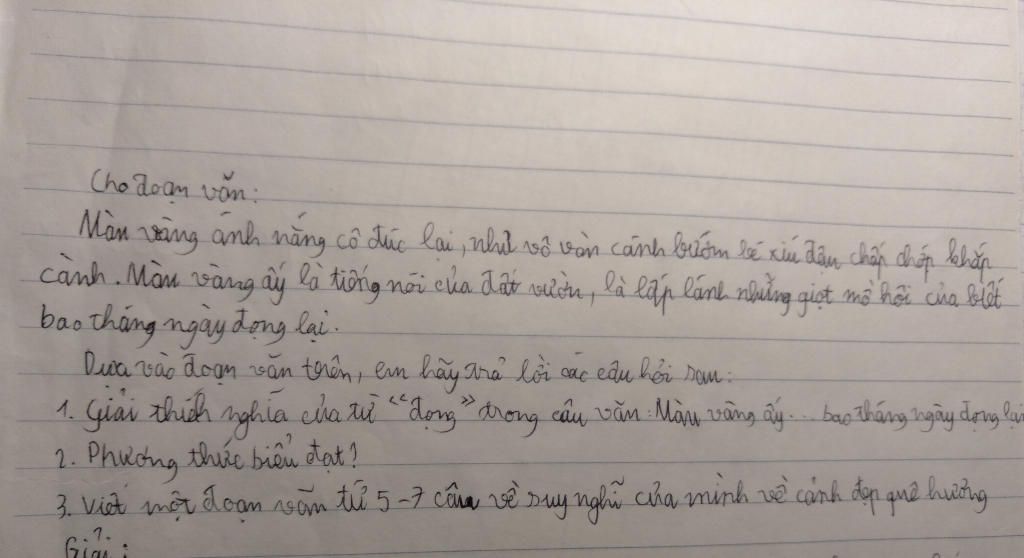 Cho đoạn văn:
Màu vàng ánh nắng cô đúc lại, như vô vàn cánh bướm bé xíu đậu chấp chớp khắp
cành. Màu vàng ấy là tiếng nói của đất vườn, là lấp lánh những giọt mồ hôi của biết
bao tháng ngày đọng lại.
Dựa vào đoạn văn trên, em hãy trả lời các câu hỏi sau:
1. Giải thích nghĩa của từ "đọng" trong câu văn: Màu vàng ấy... bao tháng ngày đọng lại
2. Phương thức biểu đạt?
3. Viết một đoạn văn từ 5-7 câu về suy nghĩ của mình về cảnh đẹp quê hương
Giải: